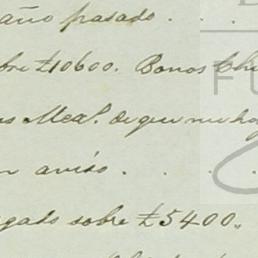 año pasado . . .
bre £10600. Bonos Chi
s Meal. de que me ha
n aviso. . . .
gado sobre £5400.